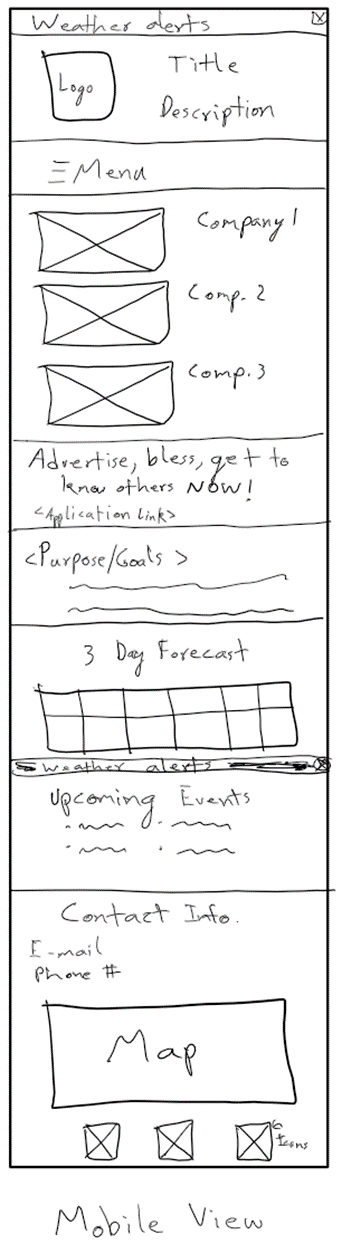 Weather alerts
Logo
Title
Description
Menu
Company 1
Comp. 2
Comp. 3
Advertise, bless, get to
know others NOW!
<Application Link>
<Purpose/Goals >
3 Day Forecast
weather alerts
Upcoming Events
Contact Info.
E-mail
Phone #
Map
Icons
Mobile View